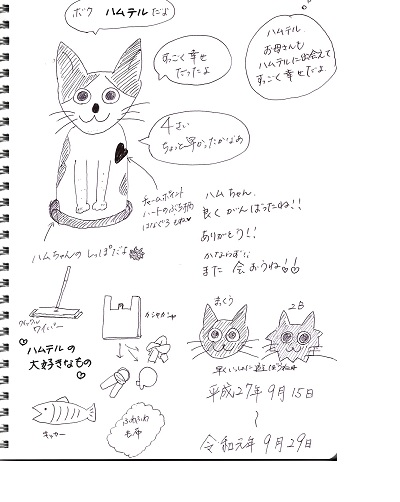 ボク ハムテルだよ
すっごく幸せ
だったよ
ハムテル、
お母さんも
ハムテルに出会えて
すっごく幸せだよ。
4さい
ちょっと早かったかなぁ
チャームポイント
ハートのぶち柄
はなぐろもね
ハムちゃんのしっぽだよ
ハムちゃん、
良くがんばったね!!
ありがとう!!
かならず
また会おうね!!
クイックル
ワイパー
カシャカシャ
ハムテルの
大好きなもの
キッカー
ふわふわ
毛布
おくう
平成27年9月15日
〜
令和元年9月29日